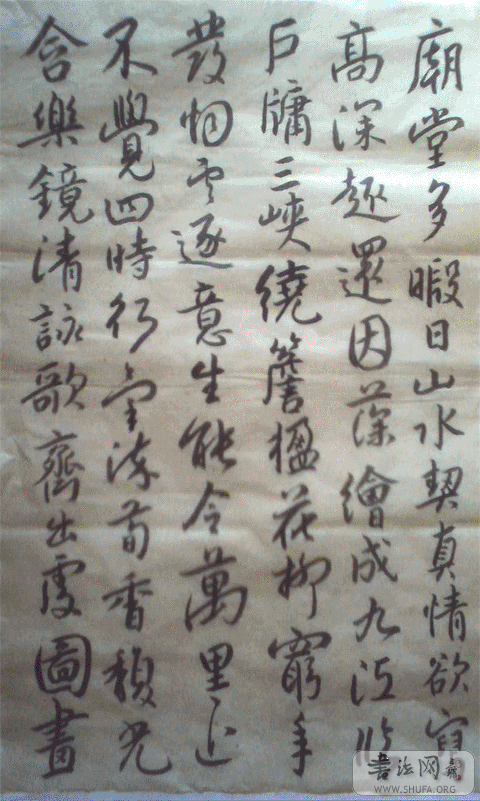 廟堂多暇日山水契真情欲寫
高深趣還因藻繪成九江臨
戶牖三峽繞簷楹花柳窮年
發烟雲逐意生能令萬里近
不覺四時行氣染荀香馥光
含樂鏡清詠歌齊出處圖畫
書法网
WWW.SHUFA.ORG